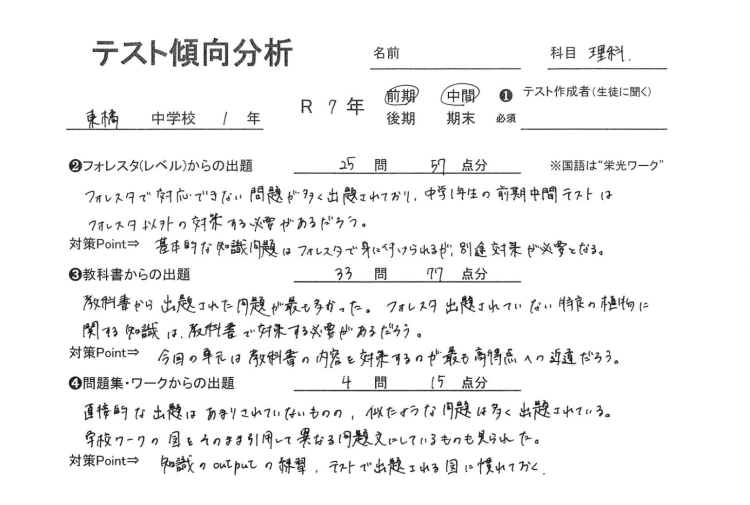 テスト傾向分析 名前 科目 理科.
東橘 中学校 1 年 R 7 年 前期 後期 中間 期末 ❶ 必須 テスト作成者(生徒に聞く)
❷フォレスタ(レベル)からの出題 25 問 57 点分 ※国語は“栄光ワーク”
フォレスタで対応できない問題が多く出題されており、中学1年生の前期中間テストは
フォレスタ以外の対策する必要があるだろう。
対策Point⇒ 基本的な知識問題はフォレスタで身に付けられるが、別途対策が必要となる。
❸教科書からの出題 33 問 77 点分
教科書から出題された問題が最も多かった。フォレスタ出題されていない特定の植物に
関する知識は、教科書で対策する必要があるだろう。
対策Point⇒ 今回の単元は教科書の内容を対策するのが最も高得点への近道だろう。
❹問題集・ワークからの出題 4 問 15 点分
直接的な出題はあまりされていないものの、似たような問題は多く出題されている。
学校ワークの図をそのまま引用して異なる問題文にしているものも見られた。
対策Point⇒ 知識のoutputの練習、テストで出題される図に慣れておく.